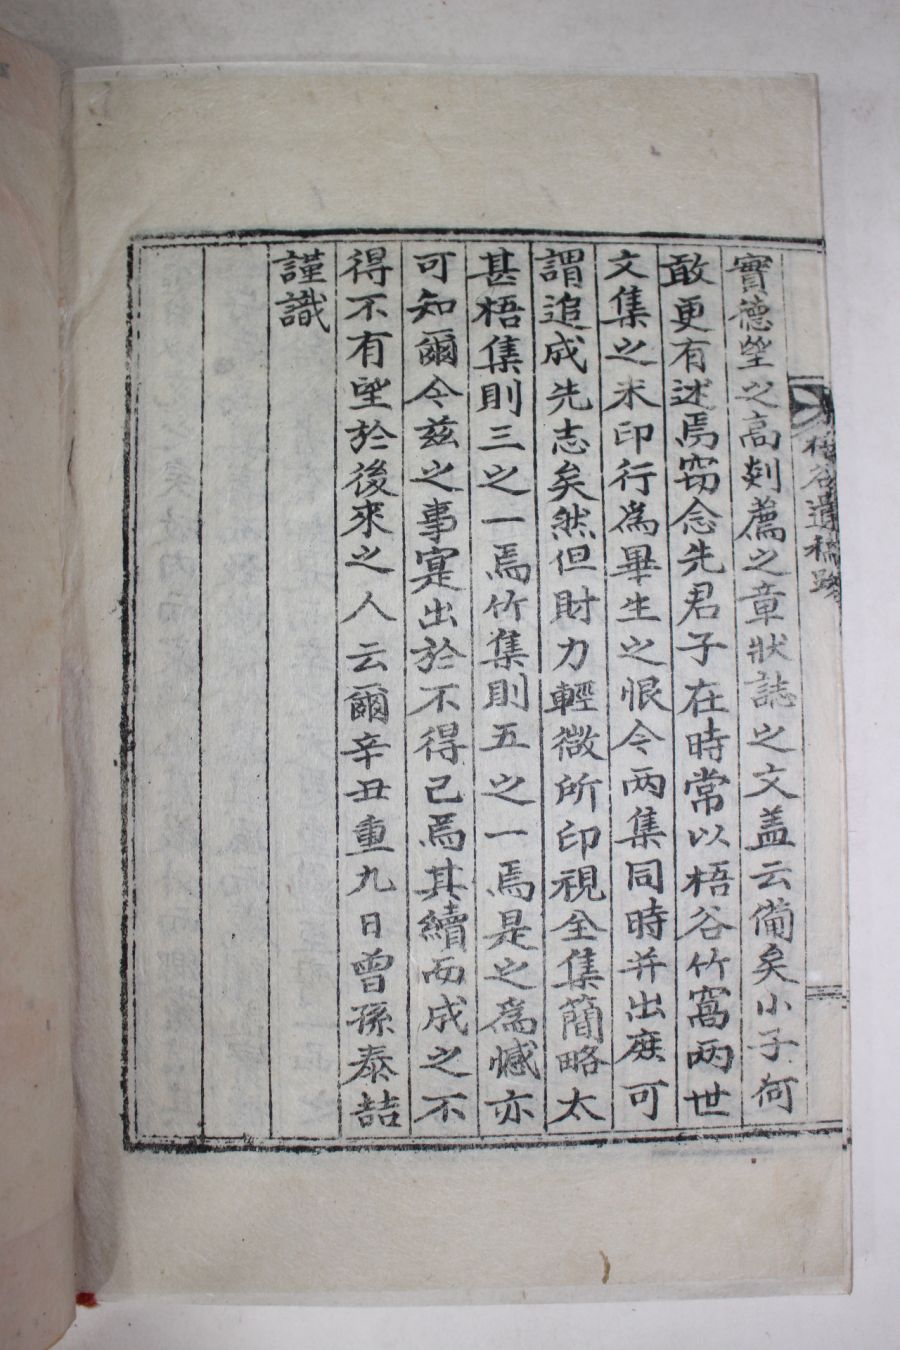 梧谷遺稿跋
實德望之高剡薦之章狀誌之文盖云備矣小子何
敢更有述焉窃念先君子在時常以梧谷竹窩两世
文集之未印行爲畢生之恨今两集同時并出庶可
謂追成先志矣然但財力輕微所印視全集簡略太
甚梧集則三之一焉竹集則五之一焉是之爲憾亦
可知爾今茲之事寔出於不得已焉其續而成之不
得不有望於後來之人云爾辛丑重九日曾孫泰喆
謹識